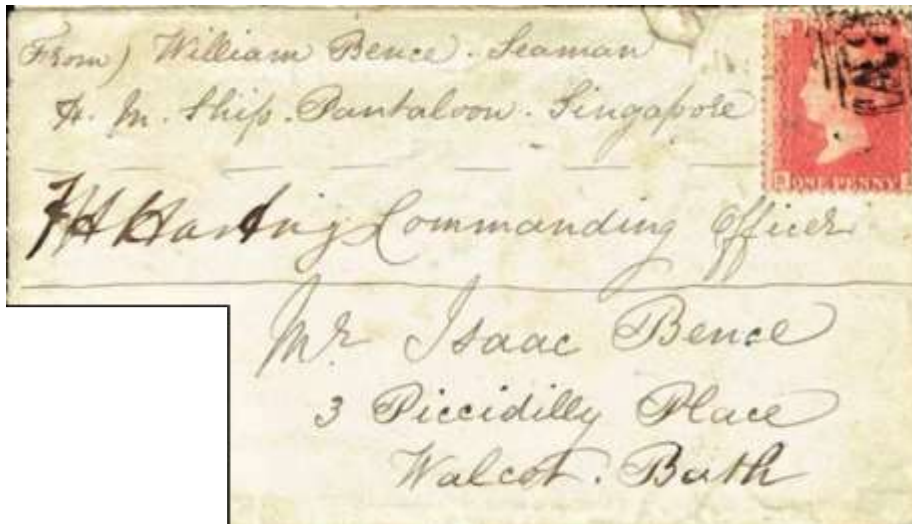 From) William Bence. Seaman
H. M. Ship. Pantaloon. Singapore
ONE PENNY
Commanding Officer
Mr Isaac Bence
3 Piccidilly Place
Walcot. Bath